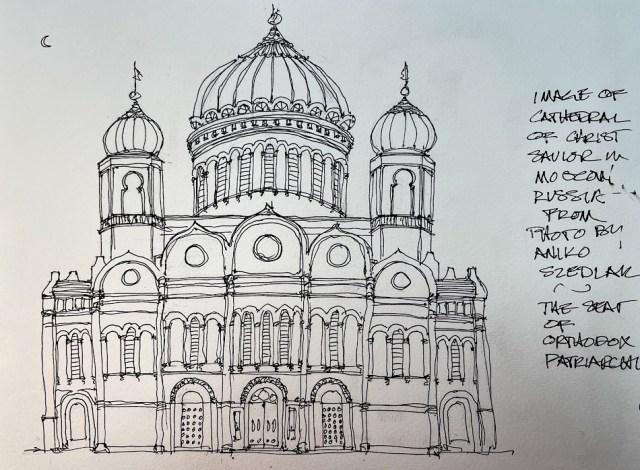 IMAGE OF
CATHEDRAL
OF CHRIST
SAVIOR IN
MOSCOW,
RUSSIA
FROM
PHOTO BY
ANIKO
SZEDLAK
THE SEAT
OF
ORTHODOX
PATRIARCH